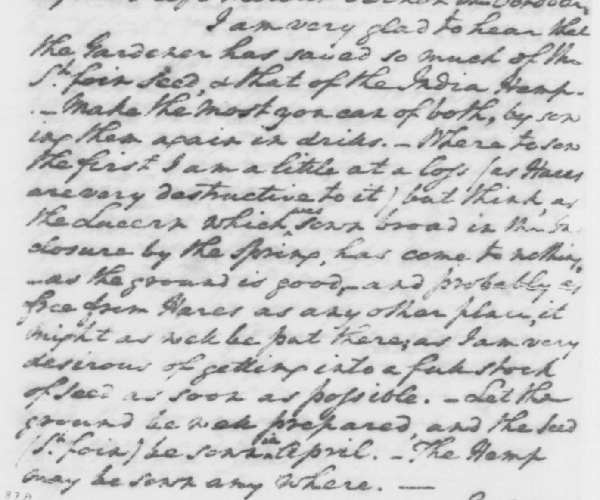 I am very glad to hear that
the Gardener has saved so much of the
St. foin seed, & that of the India Hemp.
– Make the most you can of both, by sow
ing them again in drills. – Where to sow
the first I am a little at a loss (as Hares
are very destructive to it) but think, as
the Lucern which was sown broad in the In
closure by the Spring, has come to nothing,
– as the ground is good, – and probably as
free from Hares as any other place, it
might as well be put there; as I am very
desirous of getting into a full stock
of seed as soon as possible. – Let the
ground be well prepared, and the Seed
(St. foin) be sown in April. – The Hemp
may be sown any where. –